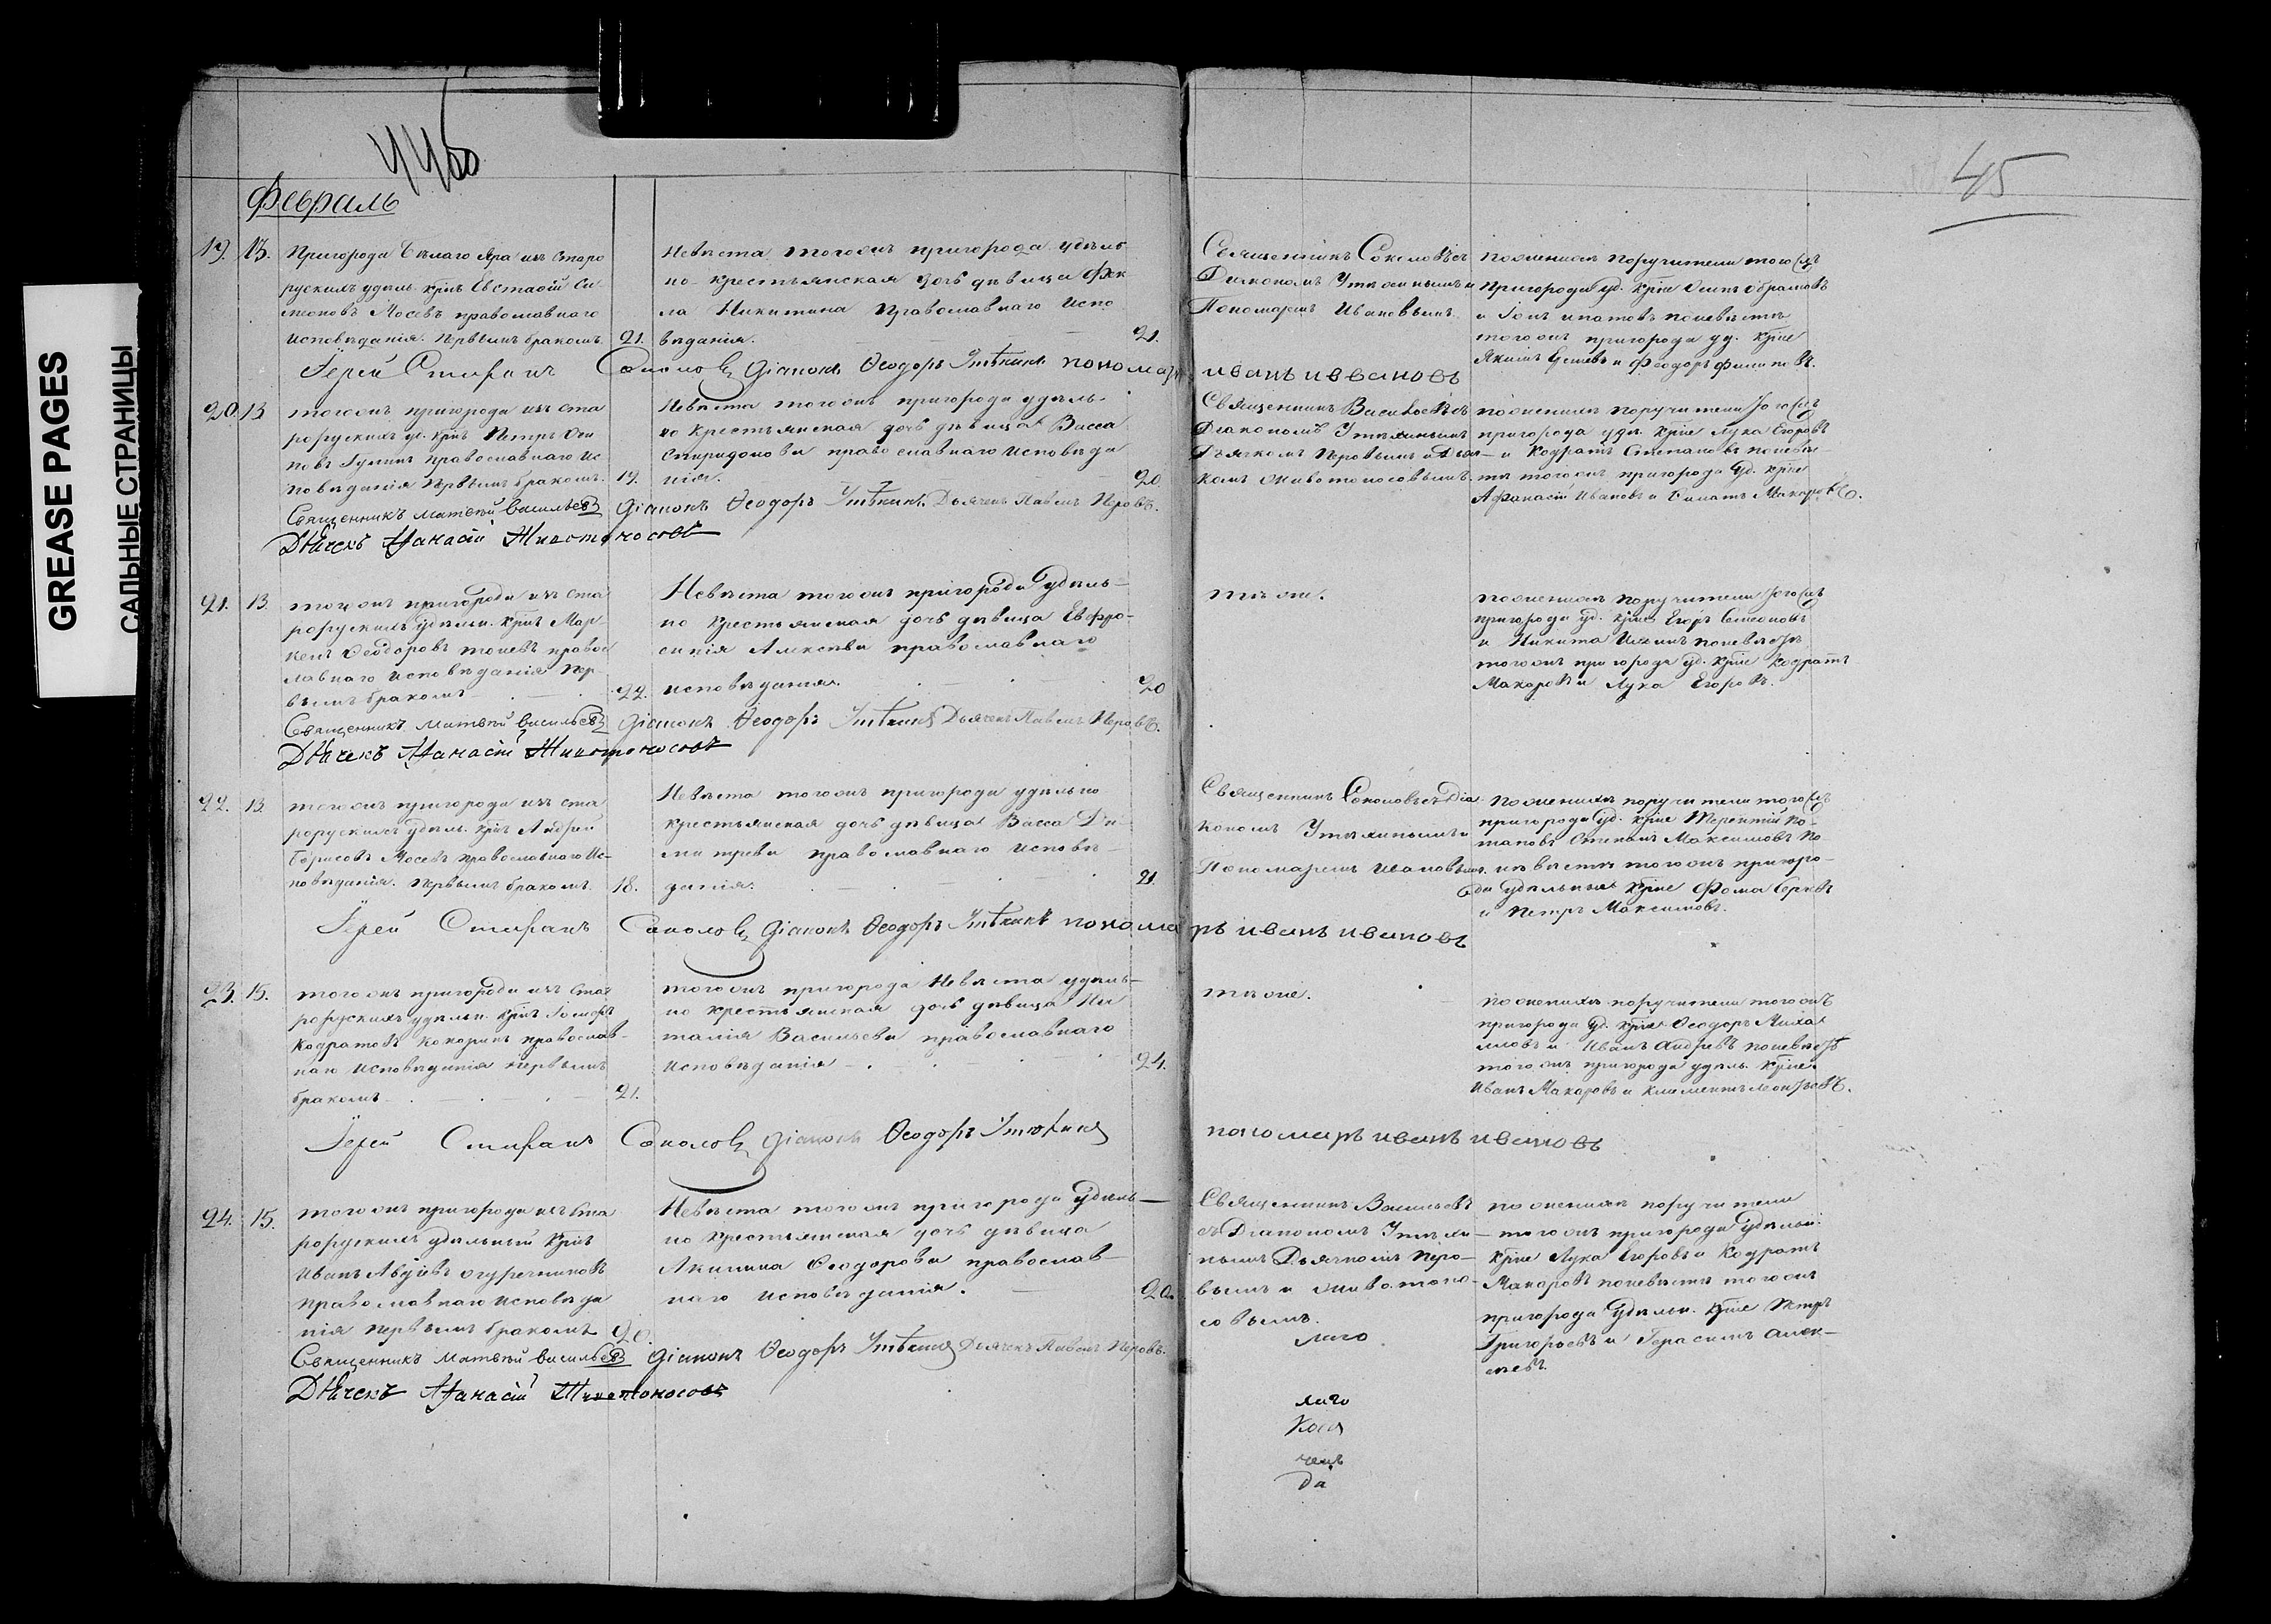 GREASE PAGES
САЛЬНЫЕ СТРАНИЦЫ
44об
45
Февраль
19. 13.
Пригорода Бѣлаго Яра изъ старо
рускихъ удѣль. кр‍нъ Евстафій Си
меоновъ Мосевъ православнаго
исповѣданія. первымъ бракомъ. 21.
Невѣста тогожъ пригорода удѣль
но-крестьянская дочь дѣвица Фек
ла Никитина Православнаго Испо
вѣданія. 21.
Священникъ Соколовъ съ
Діакономъ Утѣхинымъ и
Пономаремъ Ивановымъ
по женихѣ поручители тогожъ
Пригорода уд. кр‍не Осипъ Абрамовъ
и Іонъ Ипатовъ по невѣстѣ
тогожъ пригорода уд. кр‍не
Якимъ и Феодоръ Филиповъ.
Іерей Стефанъ Соколовъ діаконъ Ѳеодоръ Утѣхинъ пономарь иванъ ивановъ
20. 13
тогожъ пригорода изъ ста
рорускихъ уд. кр‍нъ Петръ Оси
повъ Гулинъ православнаго Ис
повѣданія первымъ бракомъ. 19.
Невѣста тогожъ пригорода удѣль-
но крестьянская дочь дѣвица Васса
Спиридонова православнаго исповѣда
нія. 20.
Священникъ Васильевъ съ
Діакономъ Утѣхинымъ
Дьячкомъ Перовымъ и Дьяч-
комъ Животоносовымъ.
по женихѣ поручители тогожъ
пригорода удѣ. кр‍не Лука Егоровъ
и Кодратъ Степановъ по невѣ-
стѣ тогожъ пригорода уд. кр‍не
Афанасій Ивановъ и Макаровъ.
Священникъ матвѣй васильевъ діаконъ Ѳеодоръ Утѣхинъ Дьячекъ Павелъ Перовъ.
Дьячекъ Афанасій Животоносовъ
21. 13.
тогожъ пригорода изъ ста
рорускихъ удѣльн. кр‍нъ Мар-
келъ Ѳеодоровъ правос
лавнаго исповѣданія пер-
вымъ бракомъ 22.
Невѣста тогожъ пригорода удѣль-
но крестьянская дочь дѣвица Евфро-
синія Алексѣва православнаго
исповѣданія. 20
тѣ же.
по женихѣ поручители тогожъ
пригорода уд. кр‍не Егоръ Семеновъ
и Никита по невѣстѣ
тогожъ пригорода уд. кр‍не Кодратъ
Макаровъ и Лука Егоровъ.
Священникъ матвѣй васильевъ діаконъ Ѳеодоръ Утѣхинъ Дьячекъ Павелъ Перовъ.
Дьячекъ Афанасій Животоносовъ
22. 13.
тогожъ пригорода изъ ста
рорускихъ удѣль. кр‍нъ Андрей
Борисовъ Мосевъ православнаго Ис-
повѣданія. первымъ бракомъ. 18.
Невѣста тогожъ пригорода удѣльно
крестьянская дочь дѣвица Васса Ди
митрева православнаго исповѣ-
данія. 21.
Священникъ Соколовъ съ Діа-
кономъ Утѣхинымъ и
Пономаремъ Ивановымъ.
по женихѣ поручители тогожъ
пригорода уд. кр‍не Терентій По-
таповъ Степанъ Максимовъ по
невѣстѣ тогожъ пригоро-
да удѣльныхъ кр‍не Фома
и Петръ Максимовъ.
Іерей Стефанъ Соколовъ діаконъ Ѳеодоръ Утѣхинъ пономарь иванъ ивановъ
23. 15.
тогожъ пригорода изъ ста
рорускихъ удѣльн. кр‍нъ Іосифъ
Кодратовъ Кокоринъ православ-
наго исповѣданія первымъ
бракомъ 21.
тогожъ пригорода Невѣста удѣль-
но крестьянская дочь дѣвица На
талія Васильева православнаго
исповѣданія 24.
тѣ же.
по женихѣ поручители тогожъ
пригорода уд. кр‍не Ѳеодоръ Михай
ловъ и Иванъ Андревъ по невѣстѣ
тогожъ пригорода удѣль. кр‍не
Иванъ Макаровъ и Климентъ.
Іерей Стефанъ Соколовъ діаконъ Ѳеодоръ Утѣхинъ
пономарь иванъ ивановъ
24. 15.
тогожъ пригорода изъ ста
рорускихъ удѣльный кр‍нъ
Иванъ Авдіевъ Огуречниковъ
православнаго исповѣда
нія первымъ бракомъ 20.
Невѣста тогожъ пригорода удѣль-
но крестьянская дочь дѣвица
Акилина Ѳеодорова православ-
наго исповѣданія. 20.
Священникъ Васильевъ
съ Діакономъ Утѣхи-
нымъ Дьячкомъ Перо-
вымъ и Животоно-
совымъ.
по женихѣ поручители
тогожъ пригорода удѣльн.
кр‍не Лука Егоровъ и Кодратъ
Макаровъ по невѣстѣ тогожъ
пригорода удѣльн. кр‍не Петръ
Григорьевъ и Герасимъ Алек-
сѣевъ.
Священникъ матвѣй васильевъ діаконъ Ѳеодоръ Утѣхинъ Дьячекъ Павелъ Перовъ.
Дьячекъ Афанасій Животоносовъ